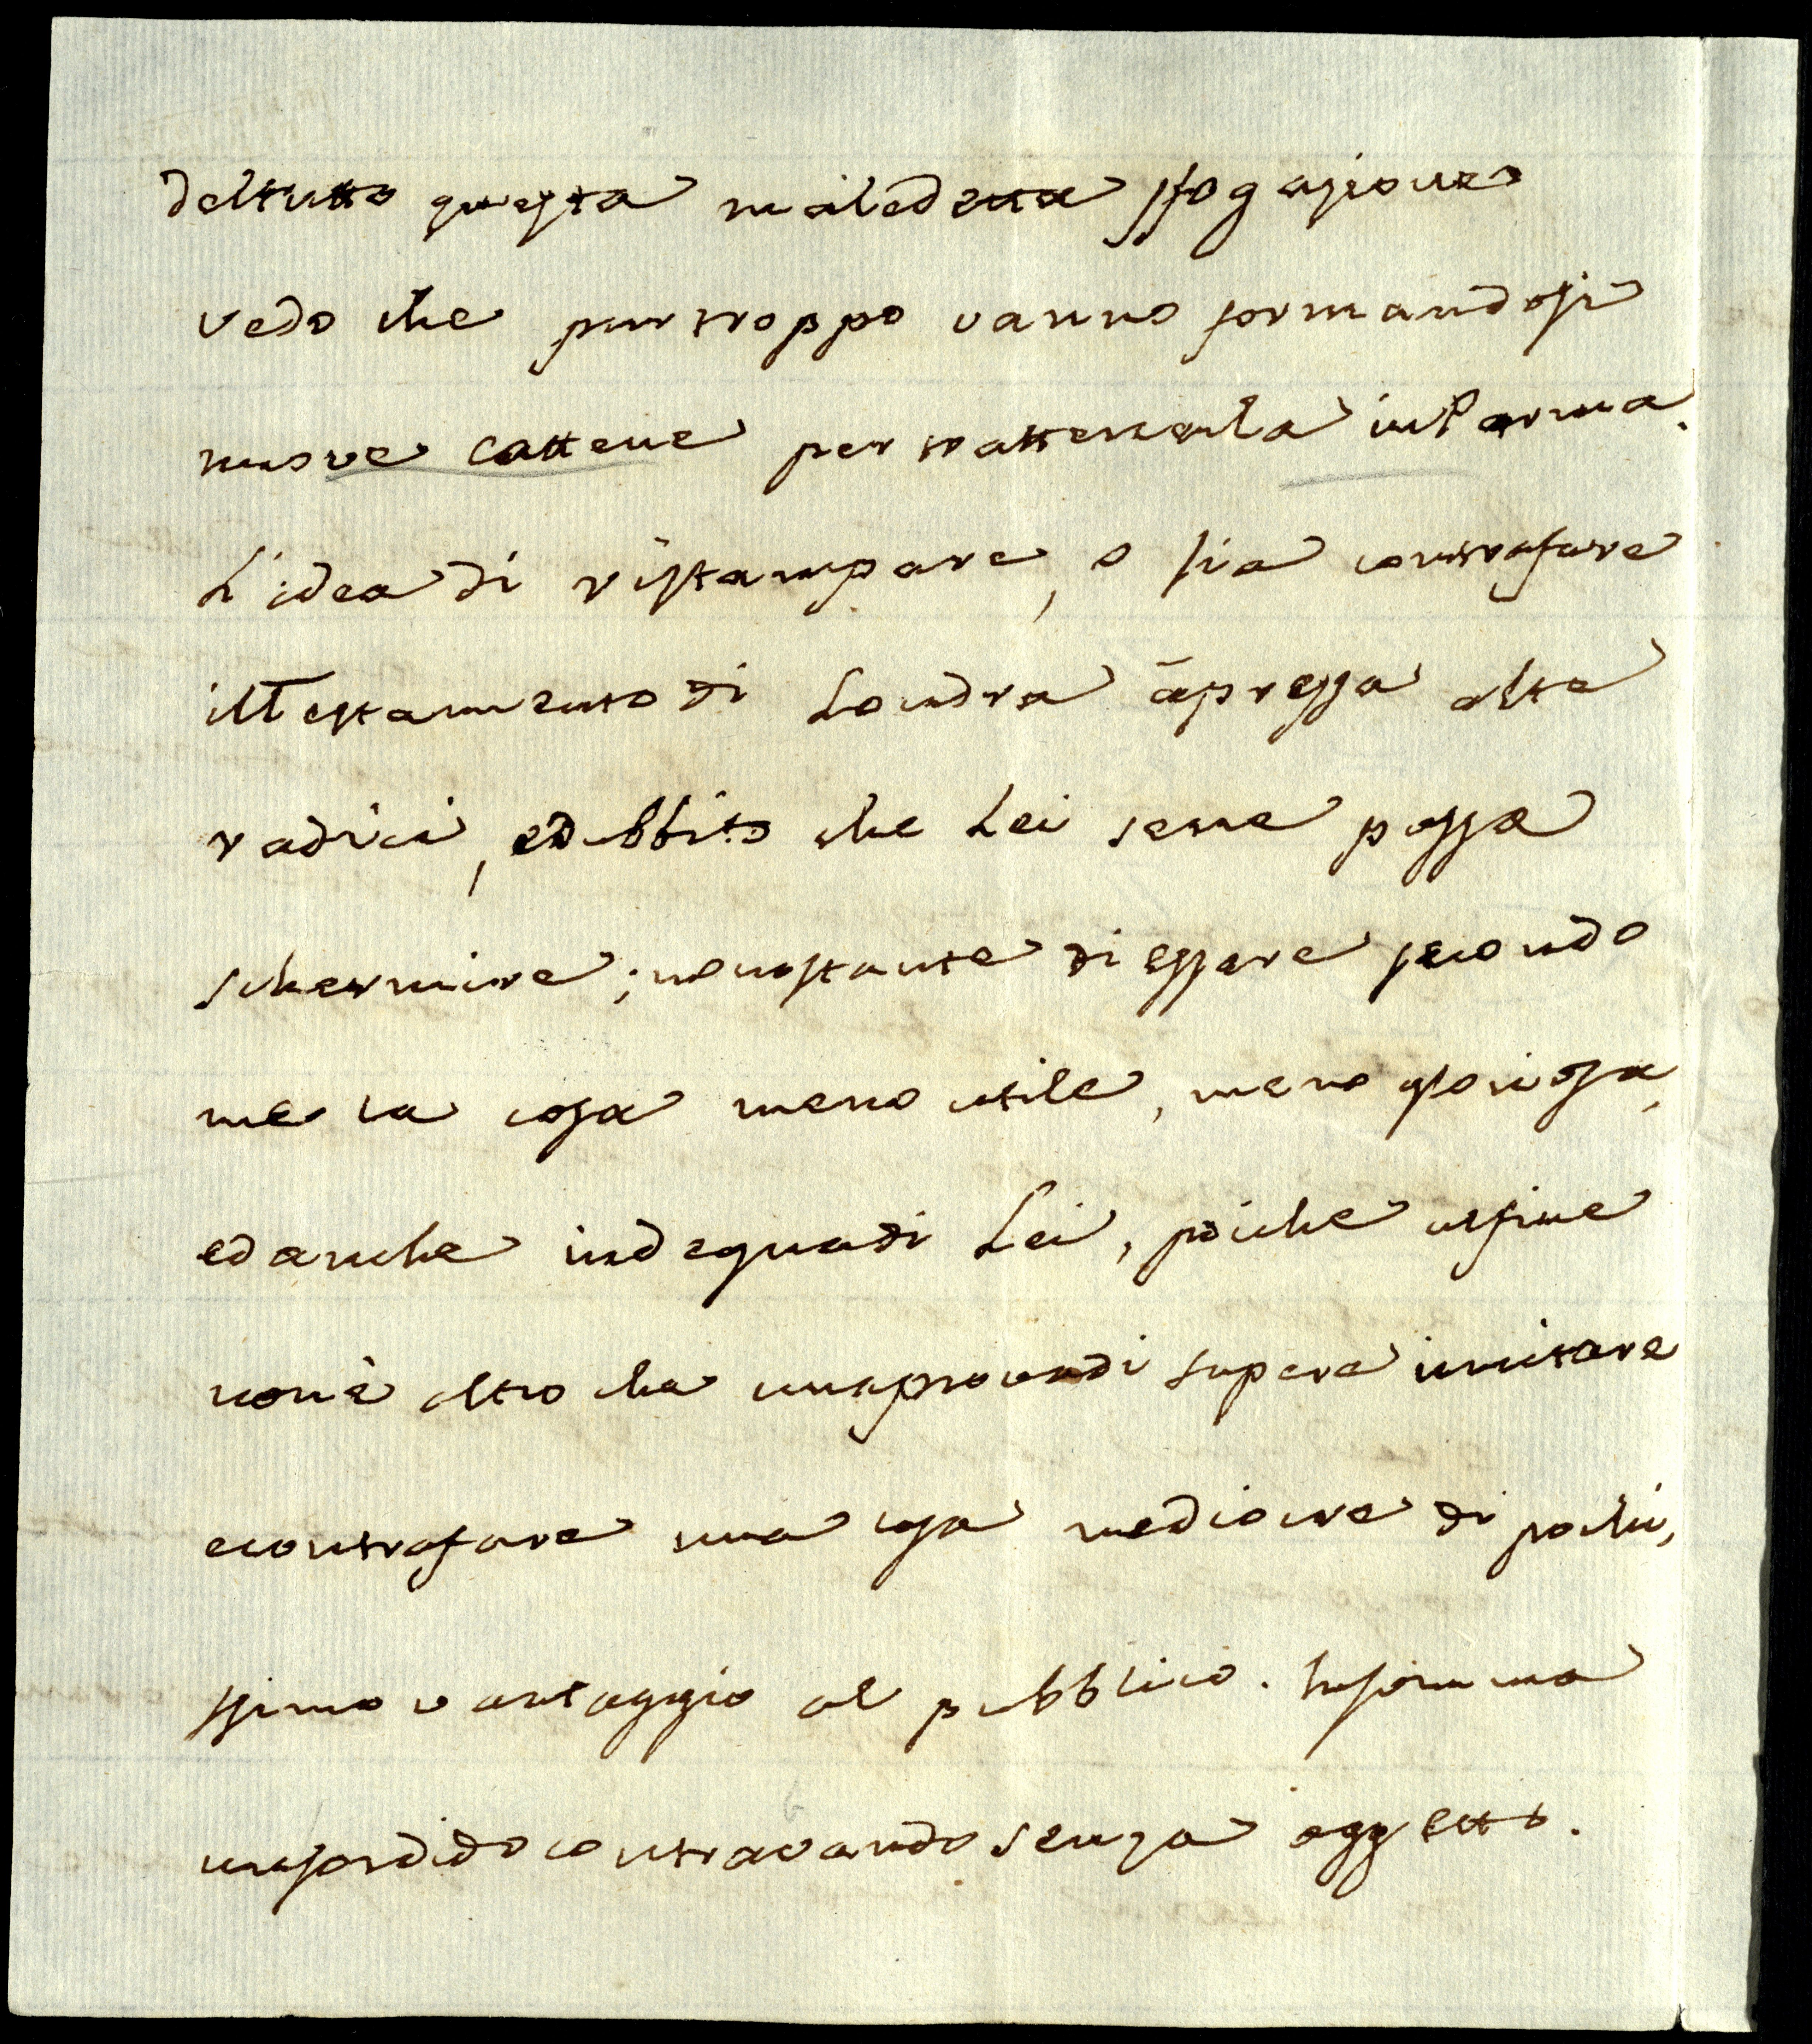 deltutto questa maledetta sfogazione
vedo che purtroppo vanno formandosi
nuove cattene per trattenerla inParma.
L'idea di ristampare, o sia contrafare
ilTestamento di Londra à presa alte
radici, edubbito che Lei sene possa
schermire; nonostante di essere secondo
me la cosa meno utile, meno gloriosa,
edanche indegnadi Lei, poiche alfine
nonè altro che unaprovadi sapere imitare
econtrafare una cosa mediocre di pochi,
ssimo vantaggio al pubblico. Insomma
unsordido contravando senza oggetto.